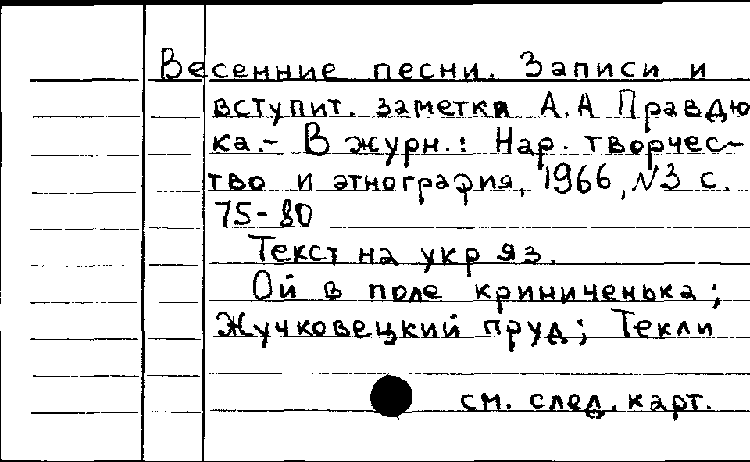 Весенние песни. Записи и
вступит. заметка А.А Правдю
ка.- В журн.: Нар. творчес-
тво и этнография, 1966, №3 с.
75-80
Текст на укр яз.
Ой в поле криниченька;
Жучковецкий пруд; Текли
см. след. карт.